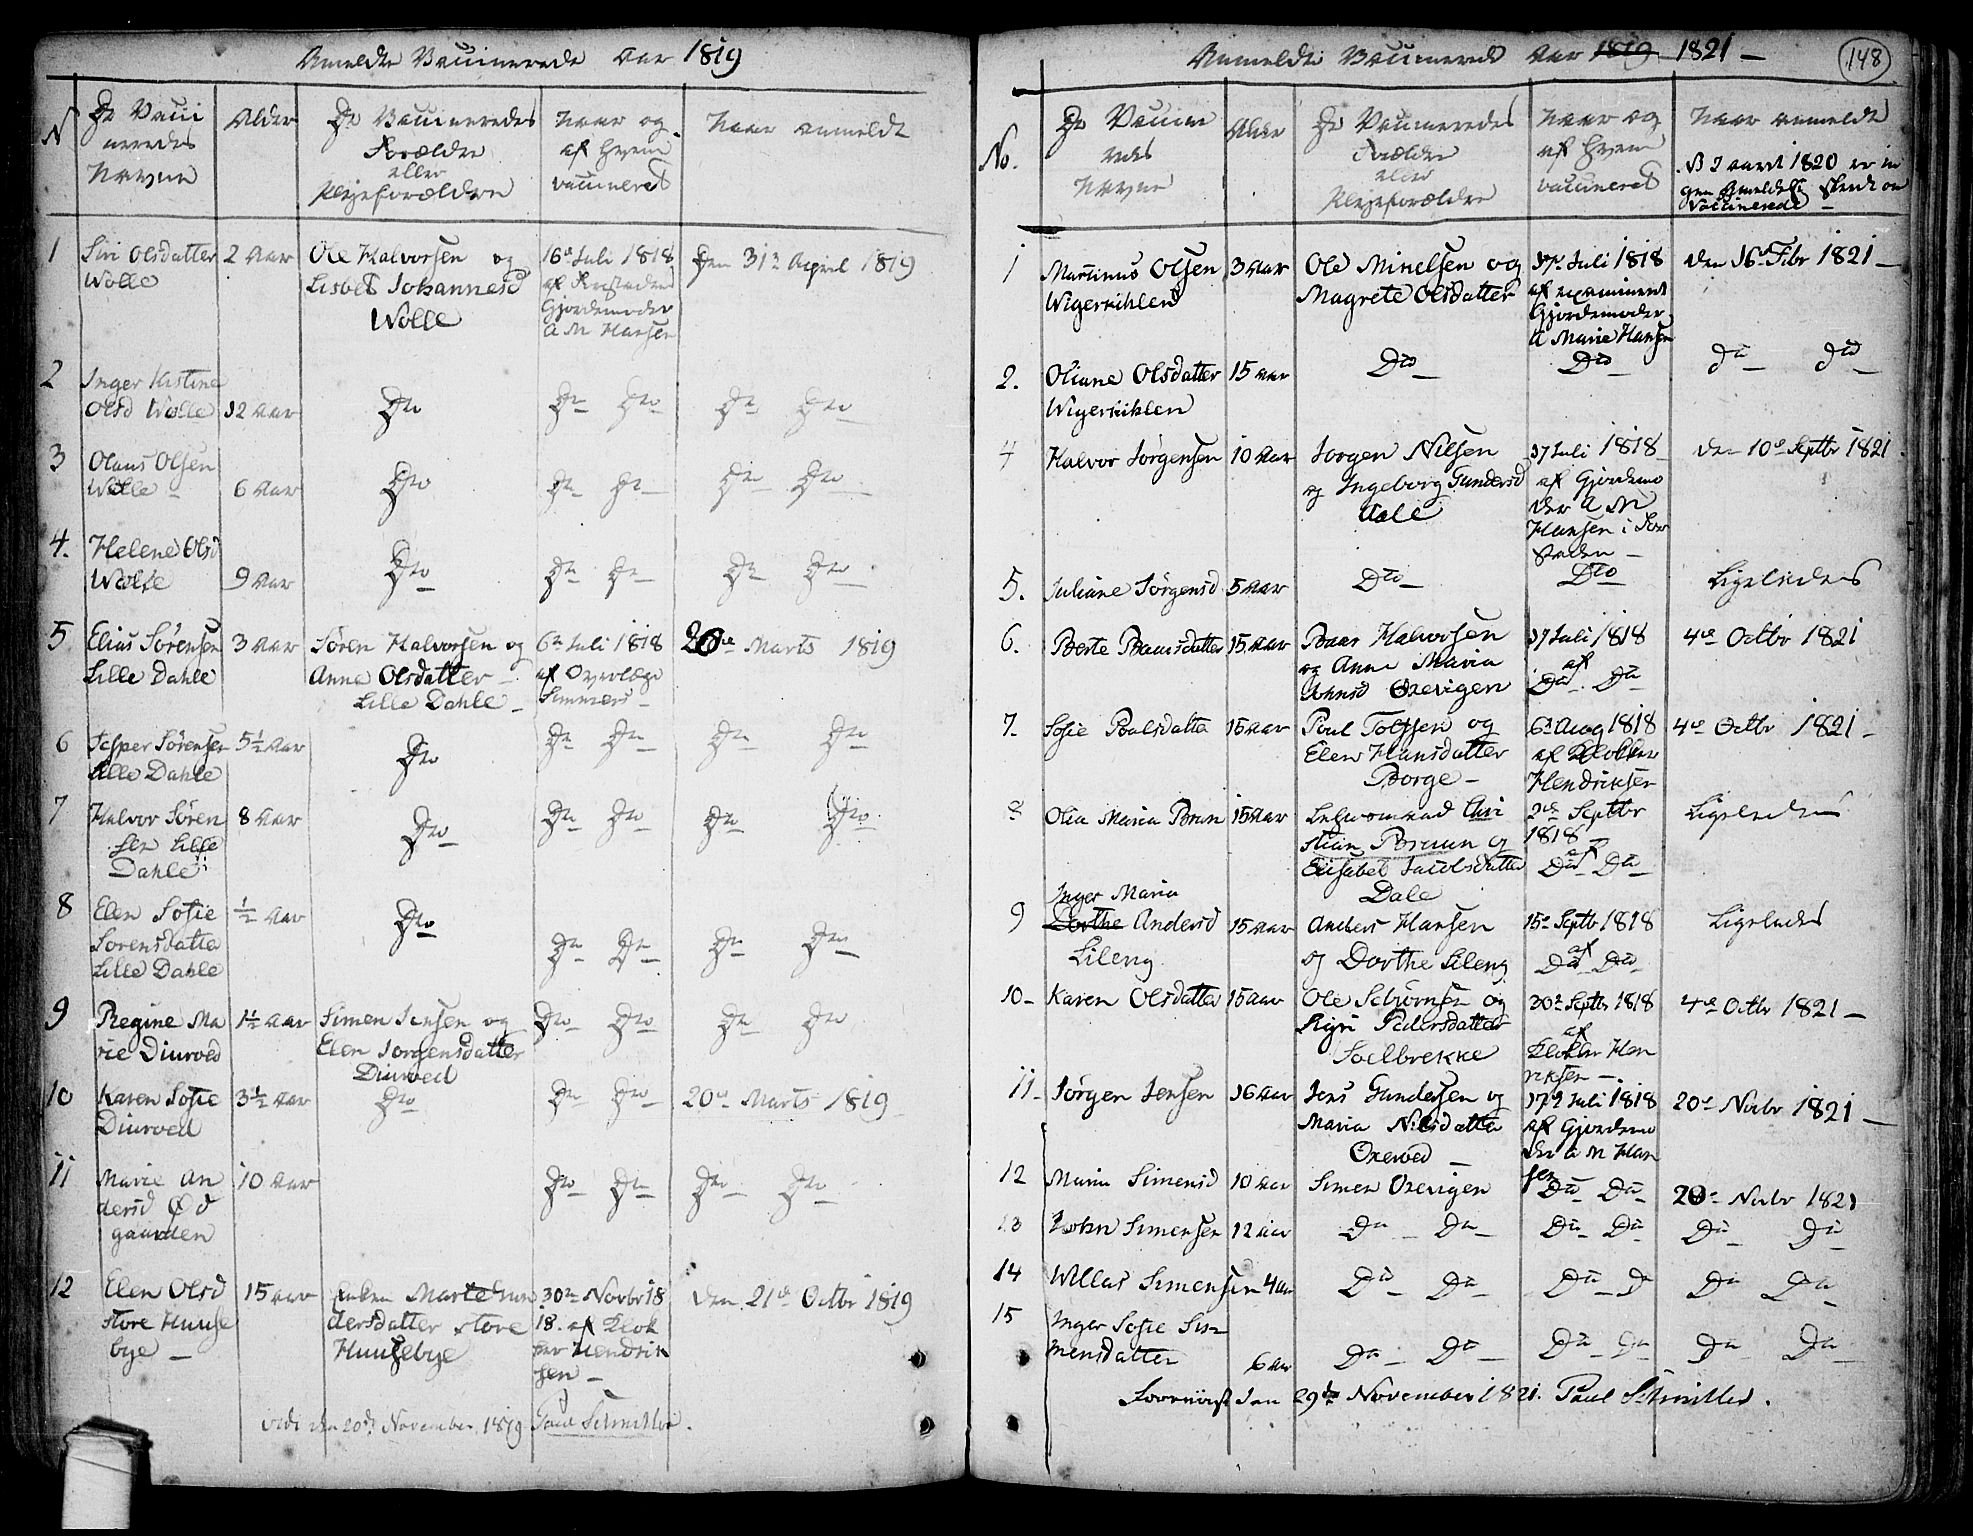 Anmeldte Vaccinerede Aar 1819
N
De Vacci
neredes
Navne
Alder
De Vaccineredes
Forældre
eller
Plejeforældre
Naar og
af Hvem
vaccineret
Naar anmeldt
1
Siri Olsdatter
Wolle
2 Aar
Ole Halvorsen og
Lisbet Johannesd
Wolle
16de Juli 1818
Gjordemoder
A M Hansen
Den 31te April 1819
2
Inger Kistine
Olsd Wolle
12 Aar
Do
Do Do
Do Do
3
Olaus Olsen
Wolle
6 Aar
Do
Do Do
Do Do
4.
Helene Olsd
Wolle
9 Aar
Do
Do Do
Do Do
5
Elias Sørensen
Lille Dahle
3 Aar
Sören Halvorsen og
Anne Olsdatter
Lille Dahle
6te Juli 1818
af Overlæge
Simmers
20de Marts 1819
6
Jesper Sørensen
Lille Dahle
5½ Aar
Do
Do Do
Do Do
7
Halvor Sören
sen Lille
Dahle
8 Aar
Do
Do Do
Do Do
8
Elen Sofie
Sorensdatter
Lille Dahle
½ Aar
Do
Do Do
Do Do
9
Regine Ma
rie Diurved
1½ Aar
Simen Jensen og
Elen Jorgensdatter
Diurved
Do Do
Do Do
10
Karen Sofie
Diurved
3½ Aar
Do
Do Do
20de Marts 1819
11
Marie An
dersd Ød
gaarden
10 Aar
Do Do
Do Do
12
Elen Olsd
store Huuse
bye
15 Aar
Enken Marte
dersdatter store
Huusebye
30te Novbr 18
18. af Klok
ker Hendrik
sen
den 21de Octbr 1819
vidi den 20de November 1819. Paul Schmitler.
Anmeldte Vaccinerede Aar 1819 1821
148
No.
De Vaccine
redes
Navne
Alder
De Vaccineredes
Forældre
eller
Plejeforældre
Naar og
af Hvem
vaccineret
Naar anmeldt
NB I aaret 1820 er in
gen Anmeldelse skeedt om
Vaccinerede
1
Martinus Olsen
Wigerkihlen
3 Aar
Ole Minelsen og
Magrete Olsdatter
17de Juli 1818
af examineret
Gjordemoder
A Marie Hansen
den 16de Fbr 1821
2.
Oliane Olsdatter
Wigerkihlen
15 Aar
Do
Do
Do Do
4
Halvor Jörgensen
10 Aar
Jorgen Nilsen
og Ingeborg Gundersd
Aale
17 Juli 1818
af Gjordemo
der A M
Hansen i For
staden
den 10de Septbr 1821
5.
Juliane Jörgensd
5 Aar
Do
Do
Ligeledes
6.
Berte Baarsdatter
15 Aar
Baar Halvorsen
og Anne Maria
Johnsd Oxevigen
17 Juli 1818
af
Do Do
4de Octbr 1821
7.
Sofie Poulsdatter
15 Aar
Poul Tolfsen og
Elen Hansdatter
Borge
6te Aug 1818
af Klokker
Hendriksen
4de Octbr 1821
8
Olia Maria Brun
15 Aar
Chri
stian Bruun og
Elisabet Jacobsdatter
Dale
2de Septbr
1818
af
Do Do
Ligeledes
9
Inger Maria
Dorthe Andersd
Lileng
15 Aar
Anders Hansen
og Dorthe Lileng
15de Septbr 1818
af
Do Do
Ligeledes
10
Karen Olsdatter
15 Aar
Ole Schjørnsen og
Siri Pedersdatter
Soelbrekke
20de Septbr 1818
af
Klokker Hen
riksen
4de Octbr 1821
11
Jörgen Jensen
16 Aar
Jens Gundersen og
Maria Nilsdatter
Oxeved
17de Juli 1818
af Gjordemo
der A M Han
sen
20de Novbr 1821
12
Maria Simensd
10 Aar
Simen Oxevigen
Do Do
20de Novbr 1821
13
John Simensen
12 Aar
Do Do
Do Do
Do Do
14
Willas Simensen
4 Aar
Do Do
Do D
Do Do
15
Inger Sofie Si
mensdatter
6 Aar
Do Do
Do Do
Do Do
Forevist den 29de November 1821. Paul Schmitler.